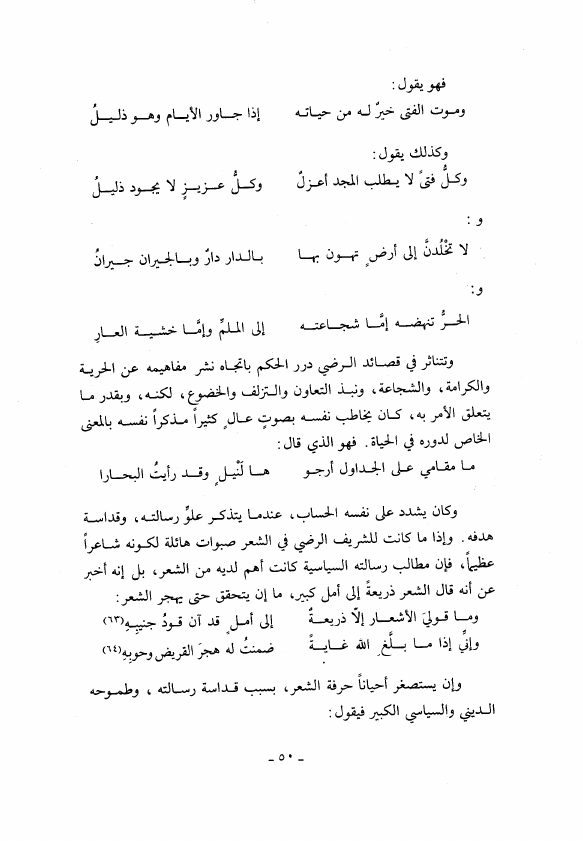 فهو يقول:
وموت الفتى خيرٌ له من حياته إذا جاور الأيام وهو ذليلُ
وكذلك يقول:
وكلُّ فتىً لا يطلب المجد أعزلٌ وكلُّ عزيزٍ لا يجود ذليلُ
و:
لا تخْلُدنَّ إلى أرضٍ تهون بها بالدار دارٌ وبالجيران جيرانُ
و:
الحرُّ تنهضه إمَّا شجاعته إلى الملمِّ وإمَّا خشية العارِ
وتتناثر في قصائد الرضي درر الحكم باتجاه نشر مفاهيمه عن الحرية
والكرامة، والشجاعة، ونبذ التعاون والتزلف والخضوع، لكنه، وبقدر ما
يتعلق الأمر به، كان يخاطب نفسه بصوتٍ عالٍ كثيراً مذكراً نفسه بالمعنى
الخاص لدوره في الحياة. فهو الذي قال:
ما مقامي على الجداول أرجو ها لَنْيلٍ وقد رأيتُ البحارا
وكان يشدد على نفسه الحساب، عندما يتذكر علوَّ رسالته، وقداسة
هدفه. وإذا ما كانت للشريف الرضي في الشعر صبوات هائلة لكونه شاعراً
عظيماً، فإن مطالب رسالته السياسية كانت أهم لديه من الشعر، بل إنه أخبر
عن أنه قال الشعر ذريعةً إلى أمل كبير، ما إن يتحقق حتى يهجر الشعر:
وما قوليَ الأشعار إلّا ذريعةٌ إلى أملٍ قد آن قودُ جنيبِهِ(٦٣)
وإنِّي إذا ما بلَّغ الله غايةً ضمنتُ له هجرَ القريض وحوبِهِ(٦٤)
وإن يستصغر أحياناً حرفة الشعر، بسبب قداسة رسالته، وطموحه
الديني والسياسي الكبير فيقول:
ـ ٥٠ ـ